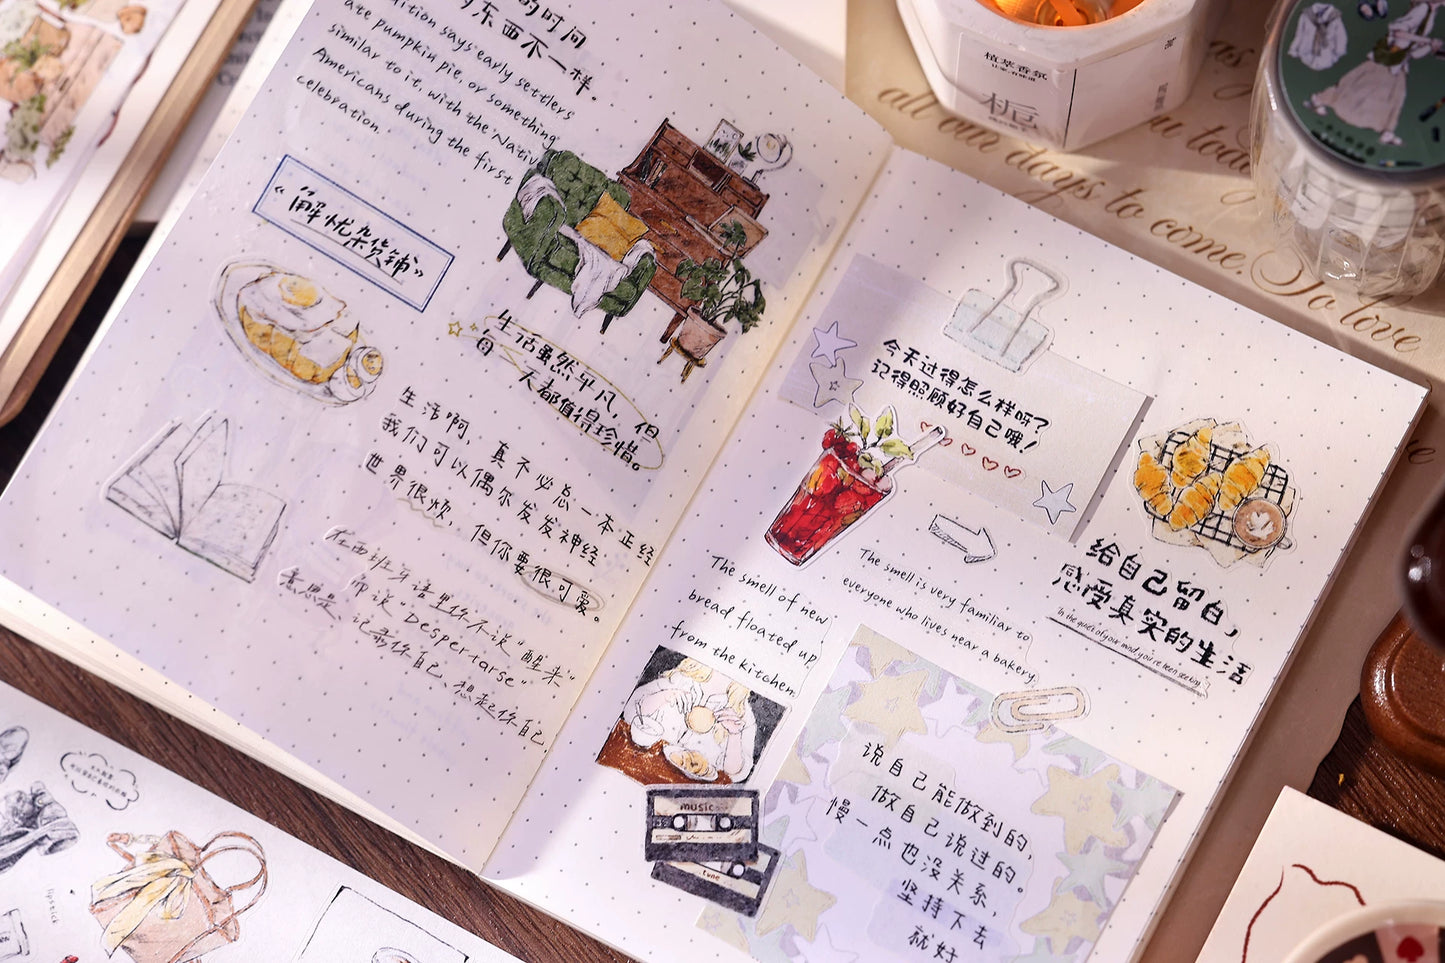 的时间
的东西不一样。
dition says early settlers
ate pumpkin pie, or something
similar to it, with the Native
Americans during the first
celebration.
《解忧杂货铺》
生活虽然平凡，但
每一天都值得珍惜。
生活啊，真不必总一本正经
我们可以偶尔发发神经
世界很烦，但你要很可爱。
在西班牙语里你不说“醒来”
而说“Despertarse”
意思是，记香你自己、想起你自己
今天过得怎么样呀？
记得照顾好自己哦！
The smell of new
bread floated up
from the kitchen.
The smell is very familiar to
everyone who lives near a bakery
给自己留白，
感受真实的生活
In the quiet of your mind, you've been seeking
music
tune
说自己能做到的，
做自己说过的。
慢一点也没关系，
坚持下去
就好
植萃香氛
栀
all our days to come. So love
you today
lipstick